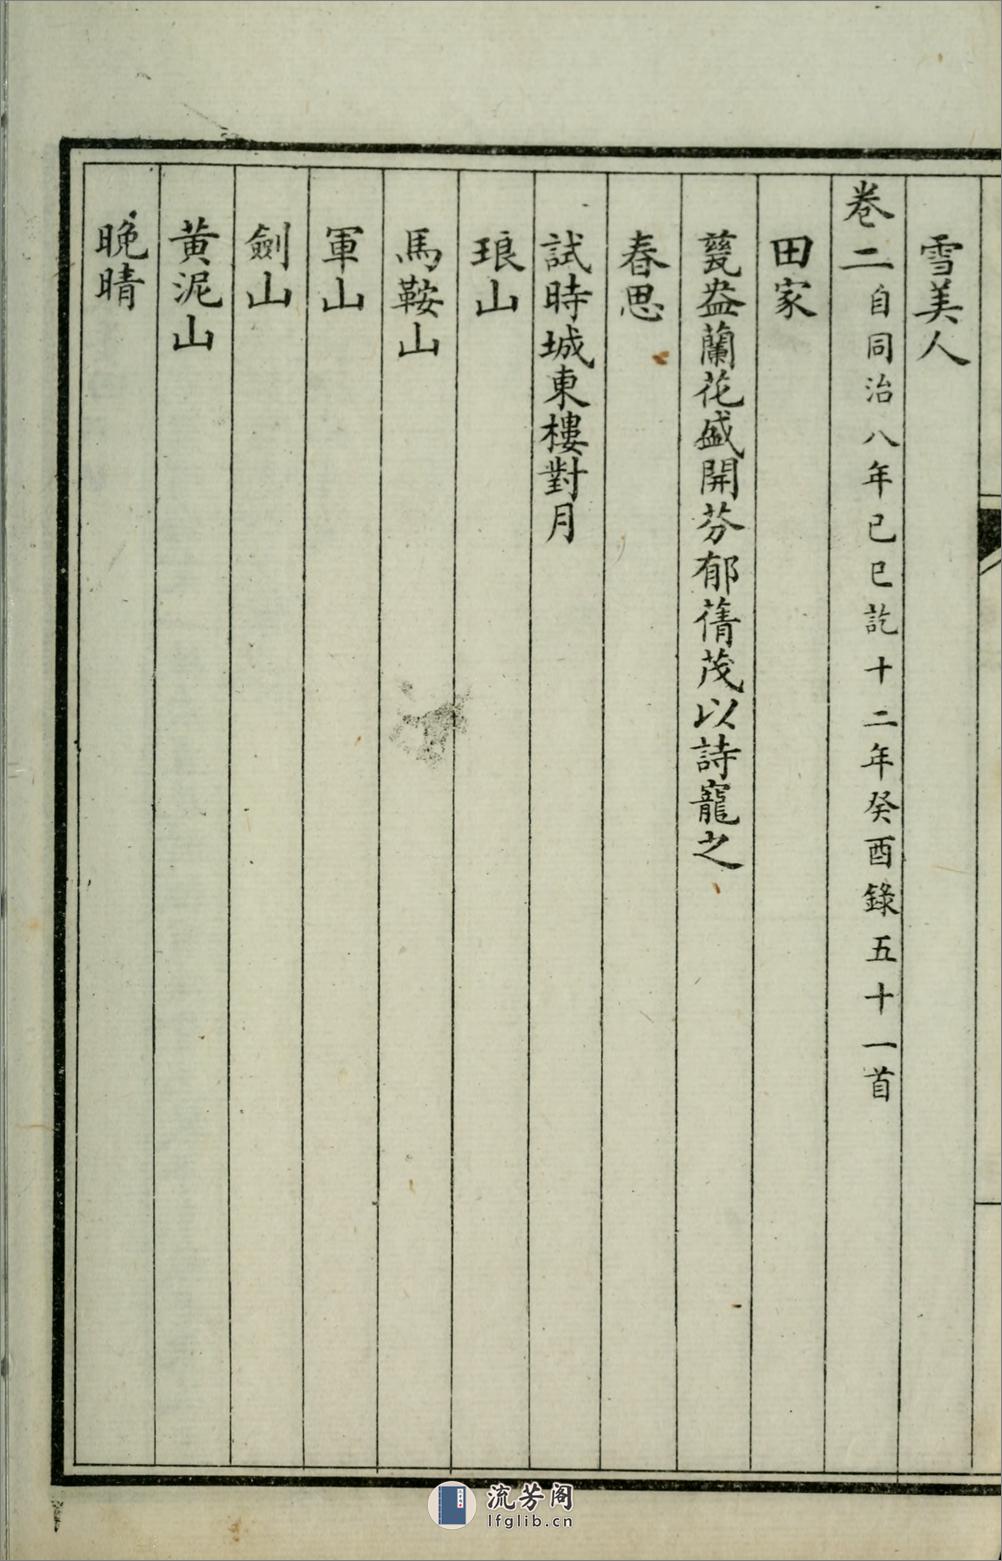 雪美人
卷二自同治八年己巳訖十二年癸酉錄五十一首
田家
甆盎蘭花盛開芬郁蒨茂以詩寵之
春思
試時城東樓對月
琅山
馬鞍山
軍山
劍山
黃泥山
晚晴
流芳阁
lfglib.cn